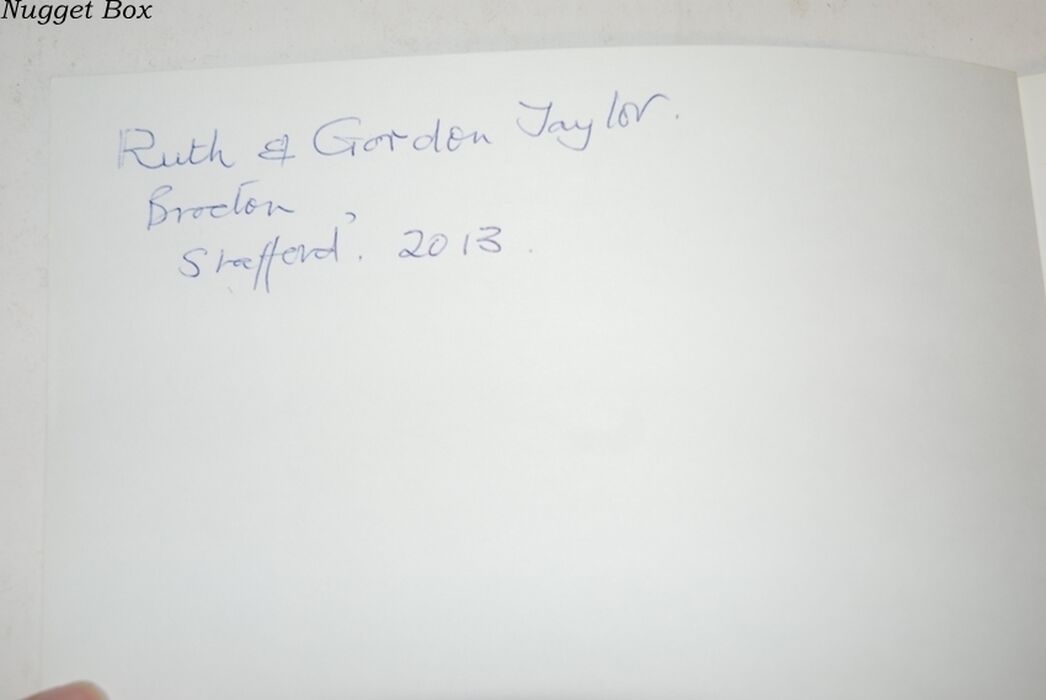 Nugget Box
Ruth & Gordon Taylor.
Brocton
Stafford'. 2013.